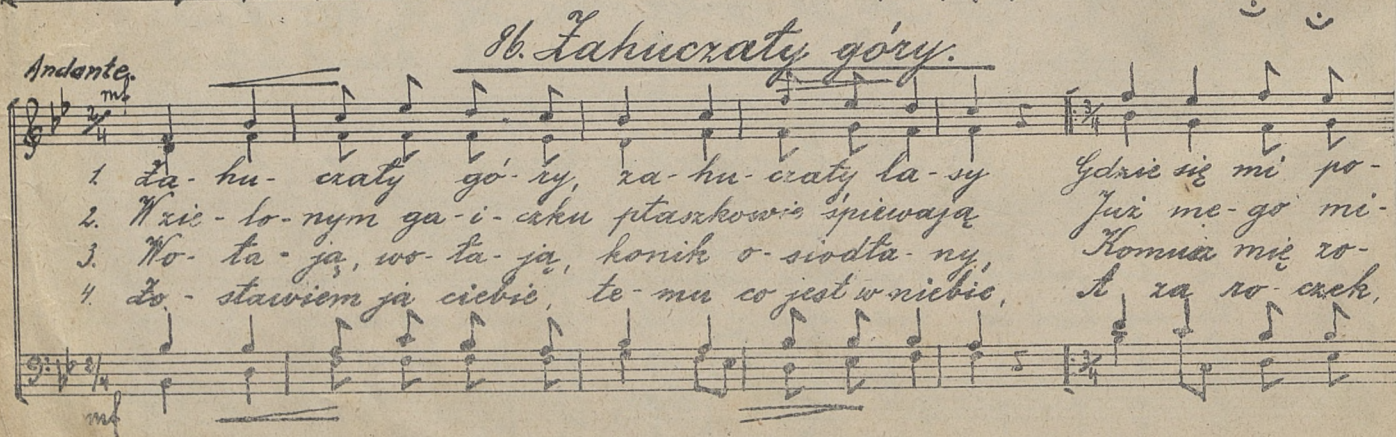 86. Zahuczały góry.
Andante.
mf
2/4 3/4
1. Za- hu- czały gó- ry, za- hu- czały la- sy Gdzie się mi po-
2. W zie- lo- nym ga- i- czku ptaszkowie śpiewają Już me- go mi-
3. Wo- ła- ją, wo- ła- ją, konik o- siodła- ny, Komuż mię zo-
4. Zo- stawiem ja ciebie, te- mu co jest w niebie, A za ro- czek,
2/4 3/4
mf